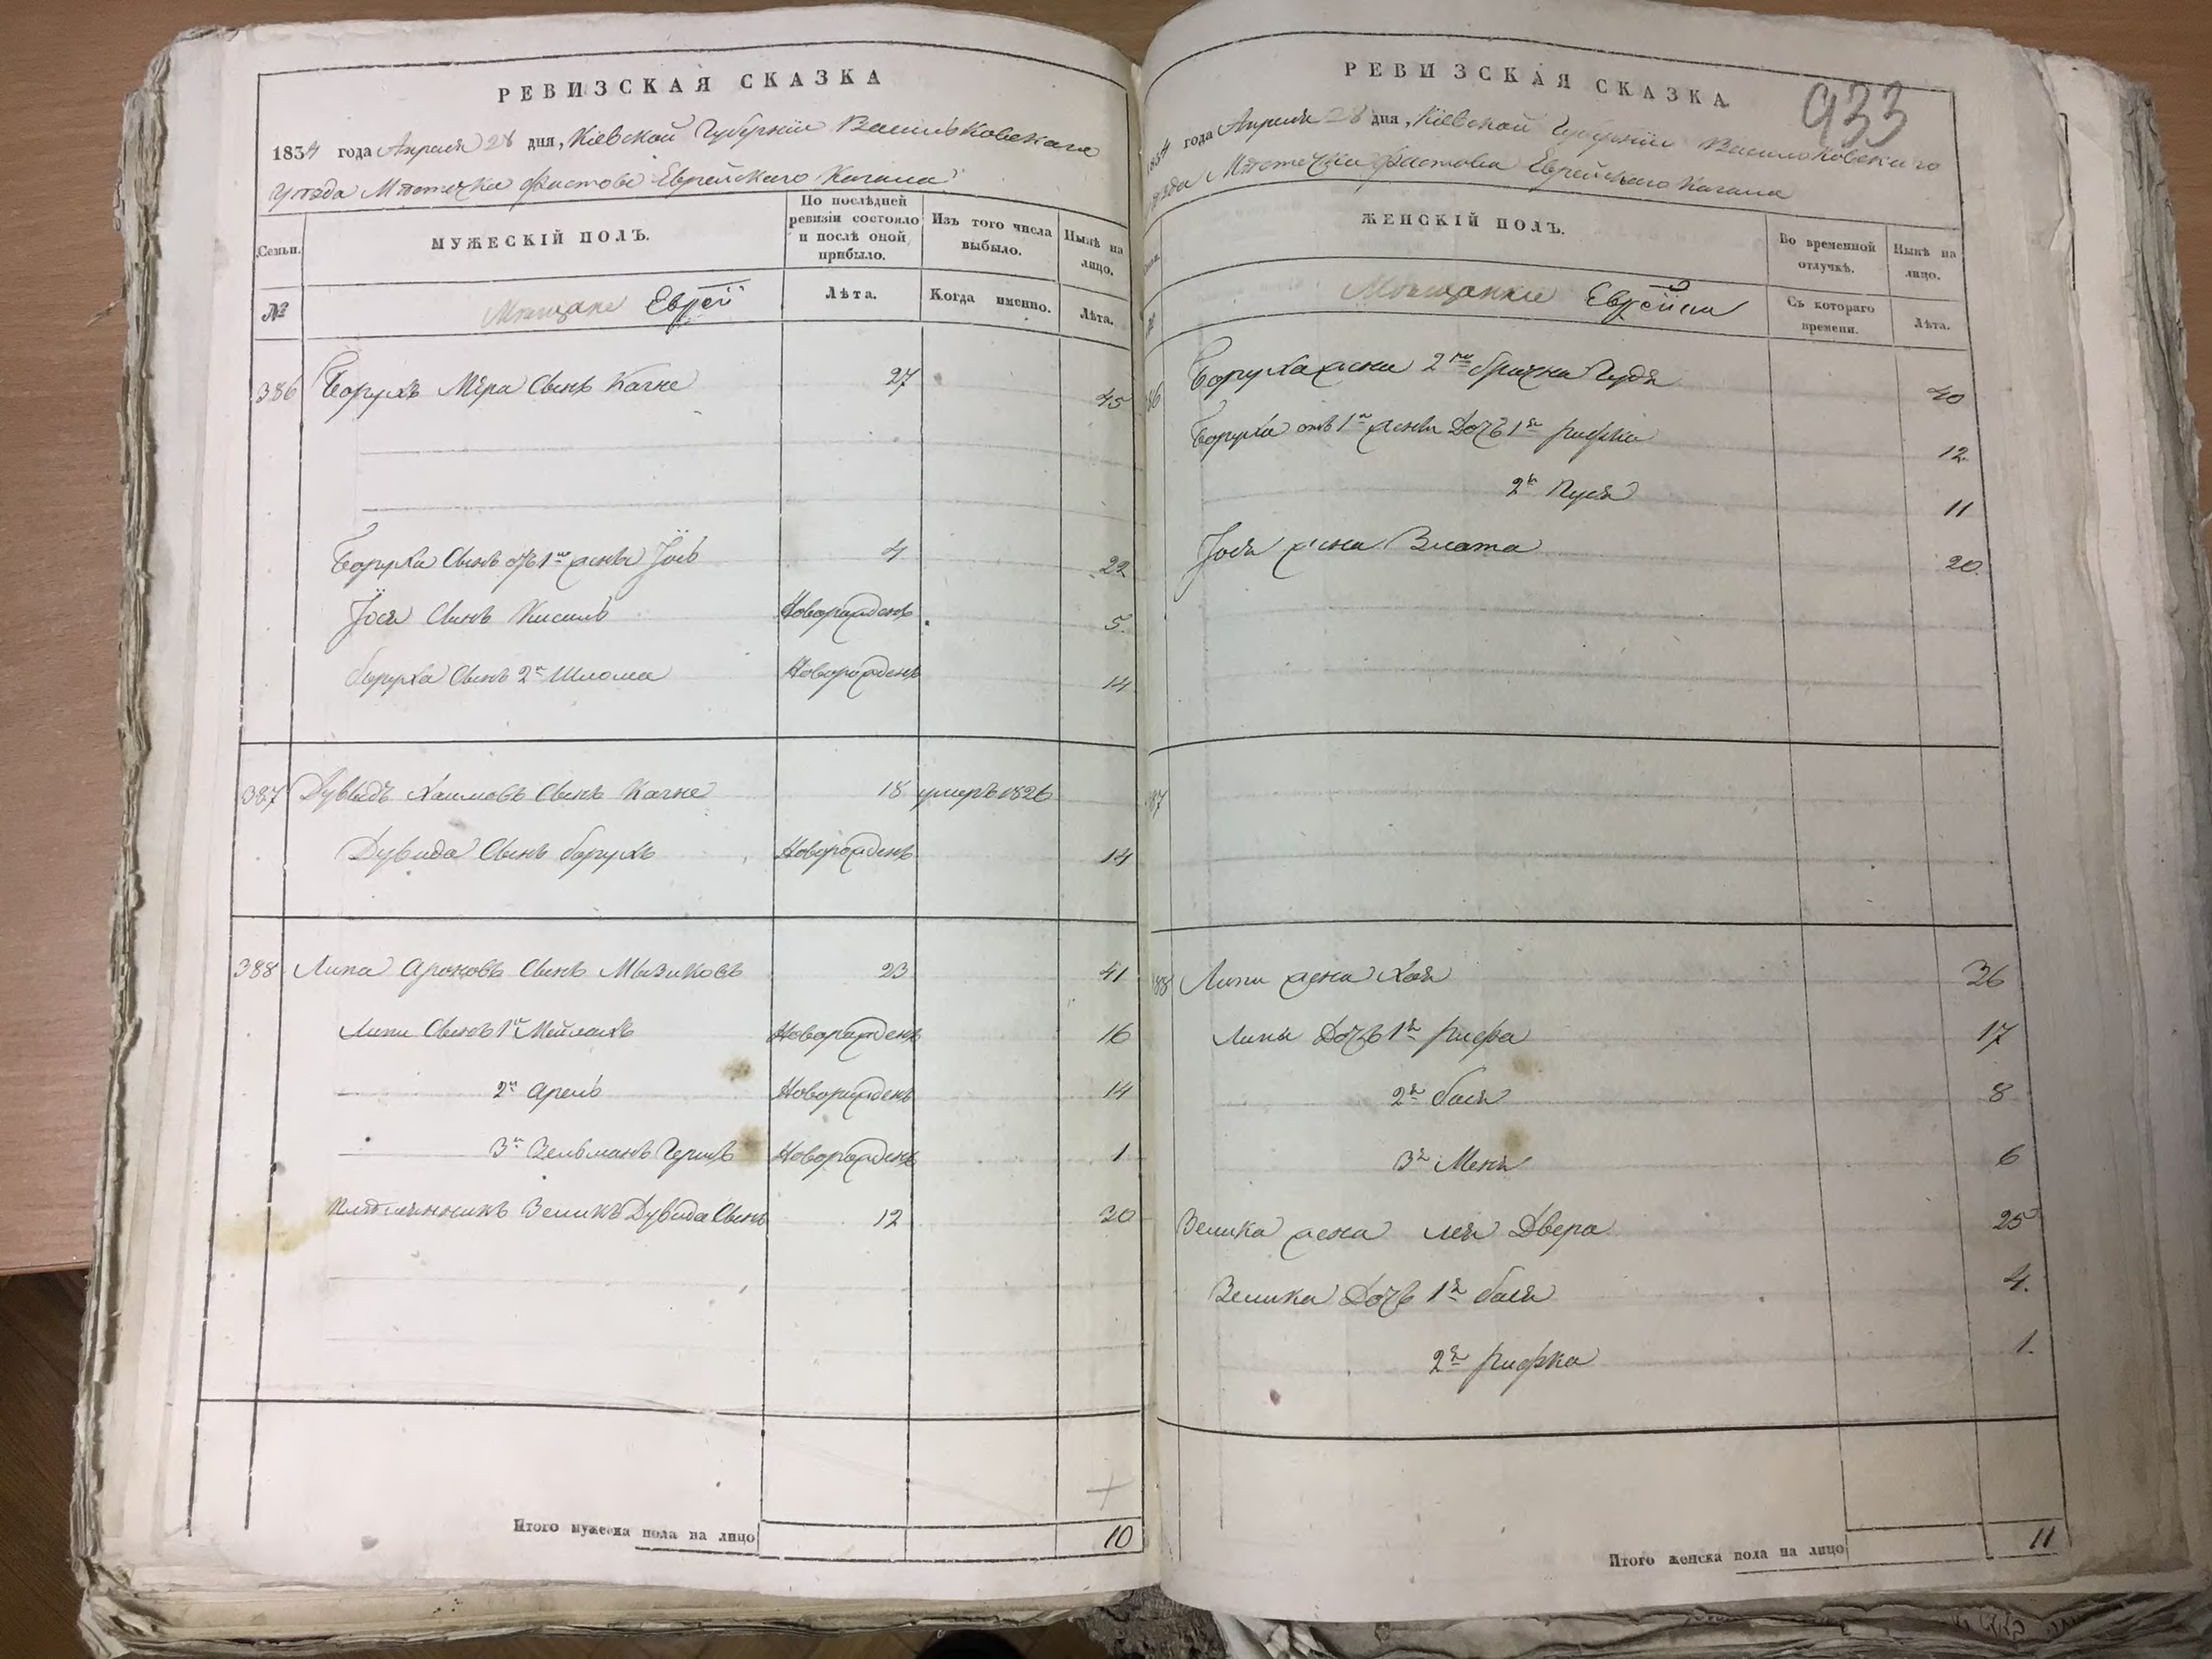 РЕВИЗСКАЯ СКАЗКА
1834 года Апреля 28 дня, Кіевской Губерніи Васильковскаго
Уѣзда Мѣстечка Фастова Еврейскаго Кагала
Семьи.
МУЖЕСКІЙ ПОЛЪ.
По послѣдней ревизіи состояло и послѣ оной прибыло.
Изъ того числа выбыло.
Нынѣ на лицо.
№
Мѣщане Евреи
Лѣта.
Когда именно.
Лѣта.
386 Борухъ Мѣра Сынъ Кагне 27 45
Боруха Сынъ отъ 1й жены Іось 4 22
Іося Сынъ Кисиль Новорожденъ 5.
Боруха Сынъ 2й Шлома Новорожденъ 14
387 Дувидъ Хаимовъ Сынъ Кагне 18 умеръ 1826
Дувида Сынъ Борухъ Новорожденъ 14
388 Липа Ароновъ Сынъ Мызиковъ 23 41
Липи Сынъ 1й Мейлахъ Новорожденъ 16
2й Арель Новорожденъ 14
3й Зельманъ Гершъ Новорожденъ 1
Племянникъ Зеликъ Дувида Сынъ 12 30
Итого мужеска пола на лицо 10
РЕВИЗСКАЯ СКАЗКА
933
1834 года Апреля 28 дня, Кіевской Губерніи Васильковскаго
Уѣзда Мѣстечка Фастова Еврейскаго Кагала
ЖЕНСКІЙ ПОЛЪ.
Во временной отлучкѣ.
Нынѣ на лицо.
№
Мѣщанки Еврейки
Съ котораго времени.
Лѣта.
86 Боруха жена 2го брачна Гудя 40
Боруха отъ 1й жены Дочь 1я Рифка 12.
2я Пуся 11
Іося жена Злата 20.
87
88 Липи жена Хая 36
Липы Дочь 1я Рифа 17
2я Бася 8
3я Меня 6
Зелика жена Лея Двера 25
Зелика Дочь 1я Бася 4.
2я Рифка 1.
Итого женска пола на лицо 11